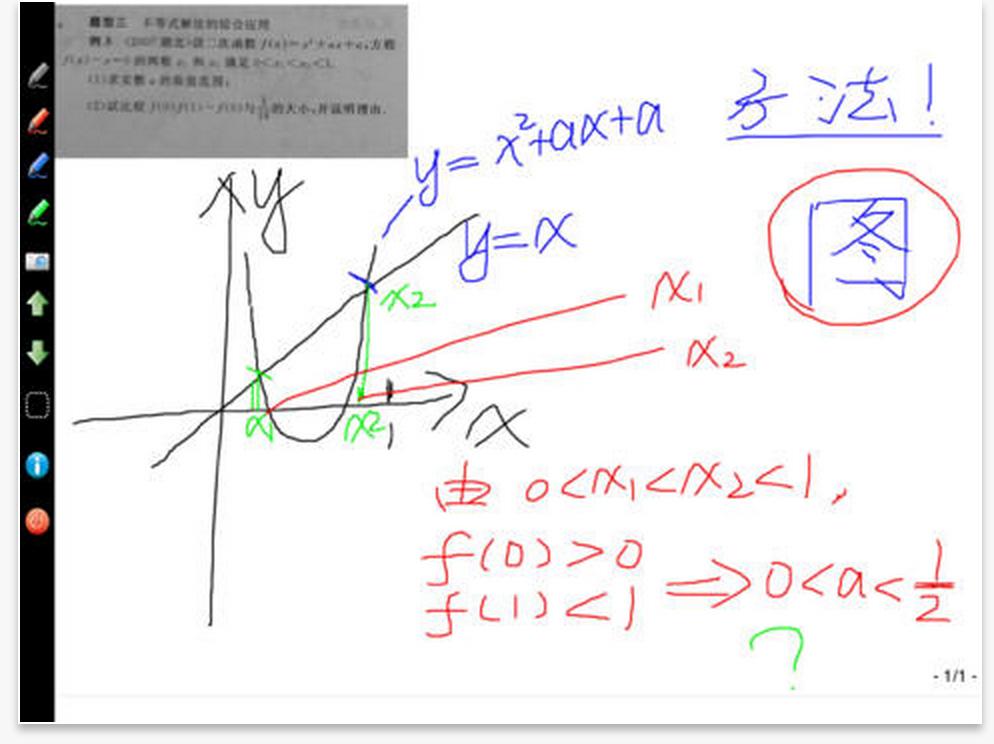 题型三 不等式解法的综合应用
例3 (2007湖北)设二次函数 f(x)=x²+ax+a,方程
f(x)-x=0的两根 x₁ 和 x₂ 满足 0<x₁<x₂<1.
(1)求实数 a 的取值范围;
(2)试比较 f(0)f(1)-f(0)与1/16的大小,并说明理由.
方法!
y=x²+ax+a
y
图
y=x
x2
x1
x2
x1
x2
1
x
由 0<x1<x2<1,
f(0)>0
f(1)<1
⇒0<a<1/2
?
- 1/1 -